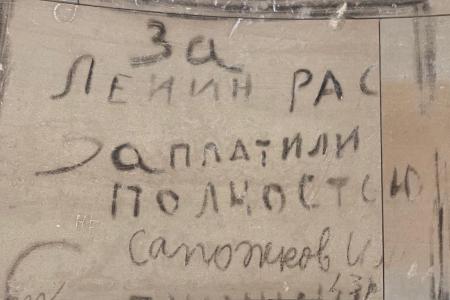 За
ЛЕНИН РАС
Заплатили
ПОЛНОСТЬЮ
Сапожков И